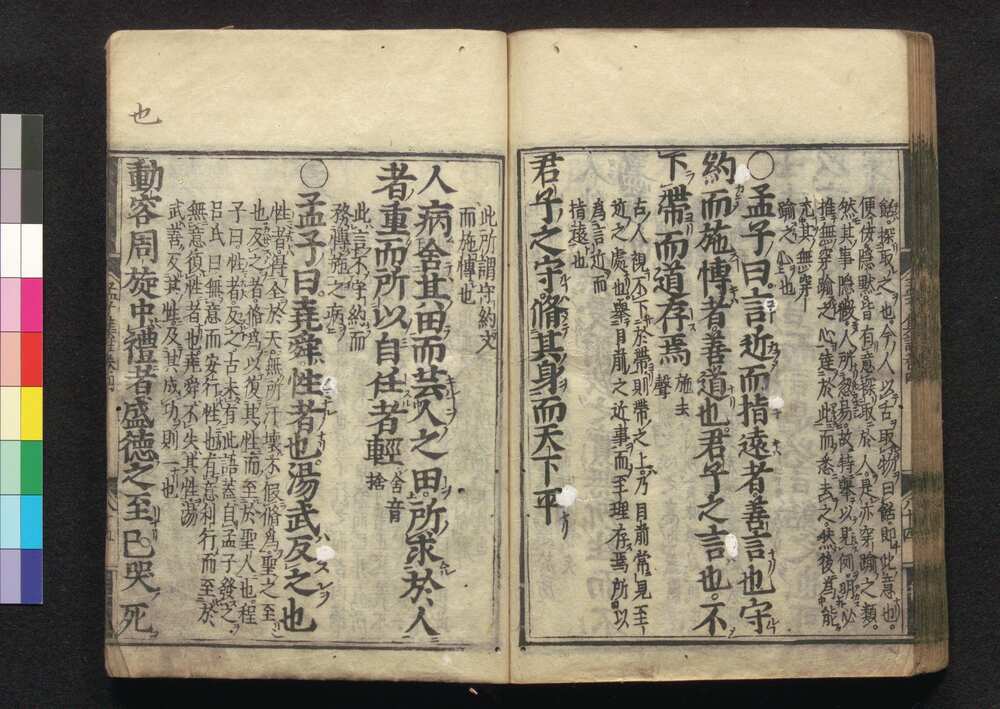 餂探取之也今人以舌取物曰餂卽此意也
便佞隱默皆有意探取於人是亦穿踰之類
然其事隱微人所忽易故特擧以見例明必
推無穿踰之心達於此而悉去之然後爲能
充其無穿
踰之心也
○孟子曰言近而指遠者善言也守
約而施慱者善道也君子之言也不
下帶而道存焉施去聲
古人視不下於帶則帶之上乃目前常見至
近之處也擧目前之近事而至理存焉所以
爲言近而
指遠也
君子之守脩其身而天下平
此所謂守約文
而施慱也
人病舍其田而芸人之田所求於人
者重而所以自任者輕舍音捨
此言不守約而
務慱施之病
○孟子曰堯舜性者也湯武反之也
性者得全於天無所汙壞不假脩爲聖之至
也反之者脩爲以復其性而至於聖人也程
子曰性者反之古未有此語蓋自孟子發之
呂氏曰無意而安行性也有意利行而至於
無意復性者也堯舜不失其性湯
武善反其性及其成功則一也
動容周旋中禮者盛德之至巳哭死
也